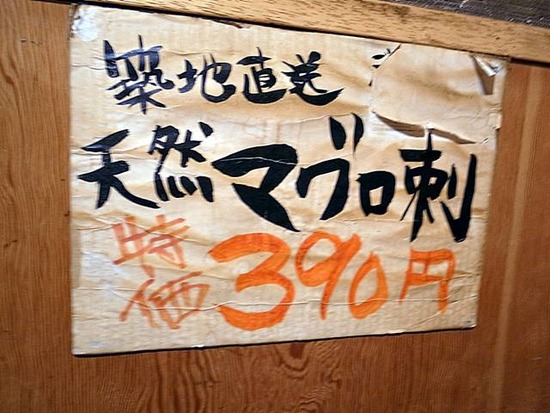 築地直送
天然マグロ刺
特価 390円